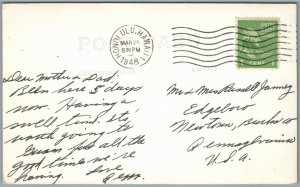 HONOLULU, HAWAII
MAR 24
6 30 PM
1948
POST CARD
Dear Mother & Dad,
Been here 3 days
now. Having a
swell time. Its
worth going to
Guam for all the
good times we're
having. Love
Mr & Mrs Russell Janney
Edgelow
Newtown, Bucks Co
Pennsylvania
U.S.A.